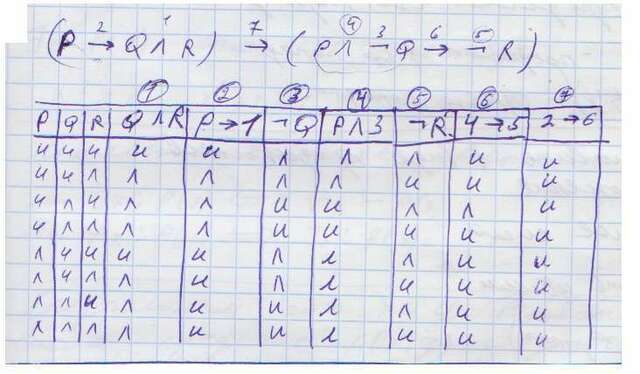 2 1 7 ④ 3 6 ⑤
(P → Q ∧ R) → (P ∧ ¬Q → ¬R)
① ② ③ ④ ⑤ ⑥ ⑦
P Q R Q∧R P→1 ¬Q P∧3 ¬R 4→5 2→6
и и и и и л л л и и
и и л л л л л и и и
и л и л л и и л л и
и л л л л и и и и и
л и и и и л л л и и
л и л л и л л и и и
л л и л и и л л и и
л л л л и и л и и и